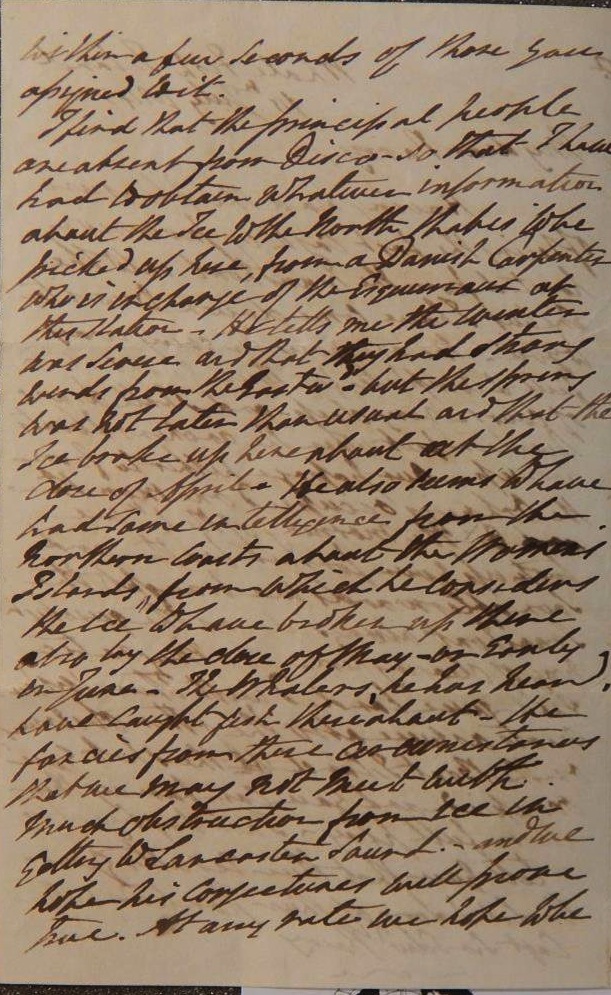 within a few seconds of those you
assigned to it.
I find that the principal people
are absent from Disco - so that I have
had to obtain whatever information
about the Ice to the North that is to be
picked up here, from a Danish Carpenter
who is in charge of the Esquimaux at
this station - He tells me the winter
was severe and that they had strong
winds from the Eastwd - but the spring
was not later than usual and that the
Ice broke up here about at the
close of April - He also seems to have
had some intelligence from the
Northern Coasts about the Womens
Islands, from which he considers
the Ice to have broken up there
also by the close of May - or Early
in June - The Whalers, he has heard,
have caught fish thereabout - He
fancies from these circumstances
that we may not meet with
much obstruction from ice in
getting to Lancaster Sound - and we
hope his conjectures will prove
true. At any rate we hope to be